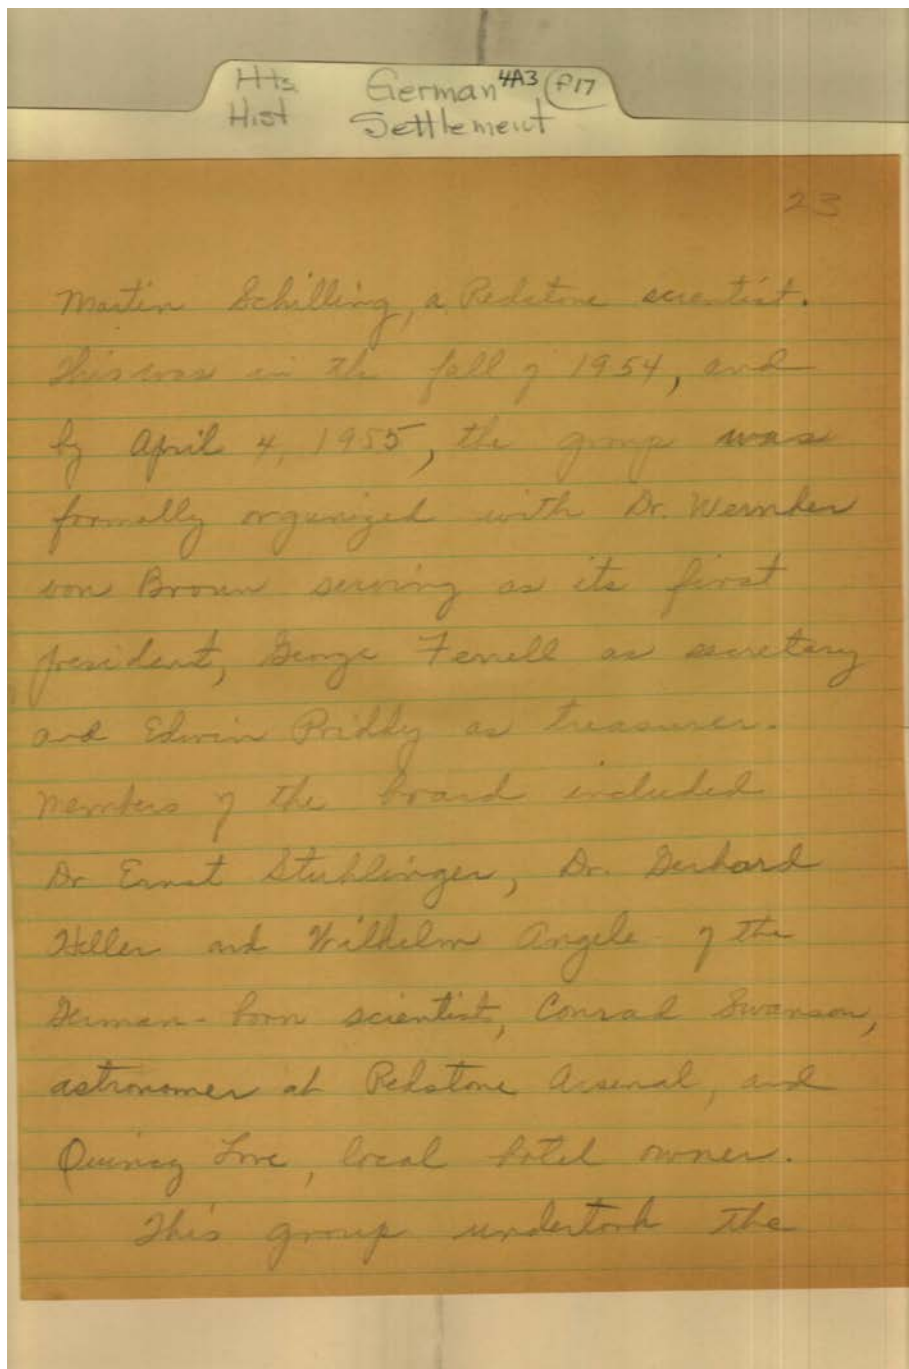 Hts German 4A3 F17
Hist Settlement
23
Martin Schilling, a Redstone scientist.
This was in the fall of 1954, and
by April 4, 1955, the group was
formally organized with Dr. Wernher
von Braun serving as its first
president, George Ferrell as secretary
and Edwin Priddy as treasurer.
Members of the board included
Dr Ernst Stuhlinger, Dr. Gerhard
Heller and Wilhelm Angele of the
German-born scientist, Conrad Swanson,
astronomer at Redstone Arsenal, and
Quincy Love, local hotel owner.
This group undertook the